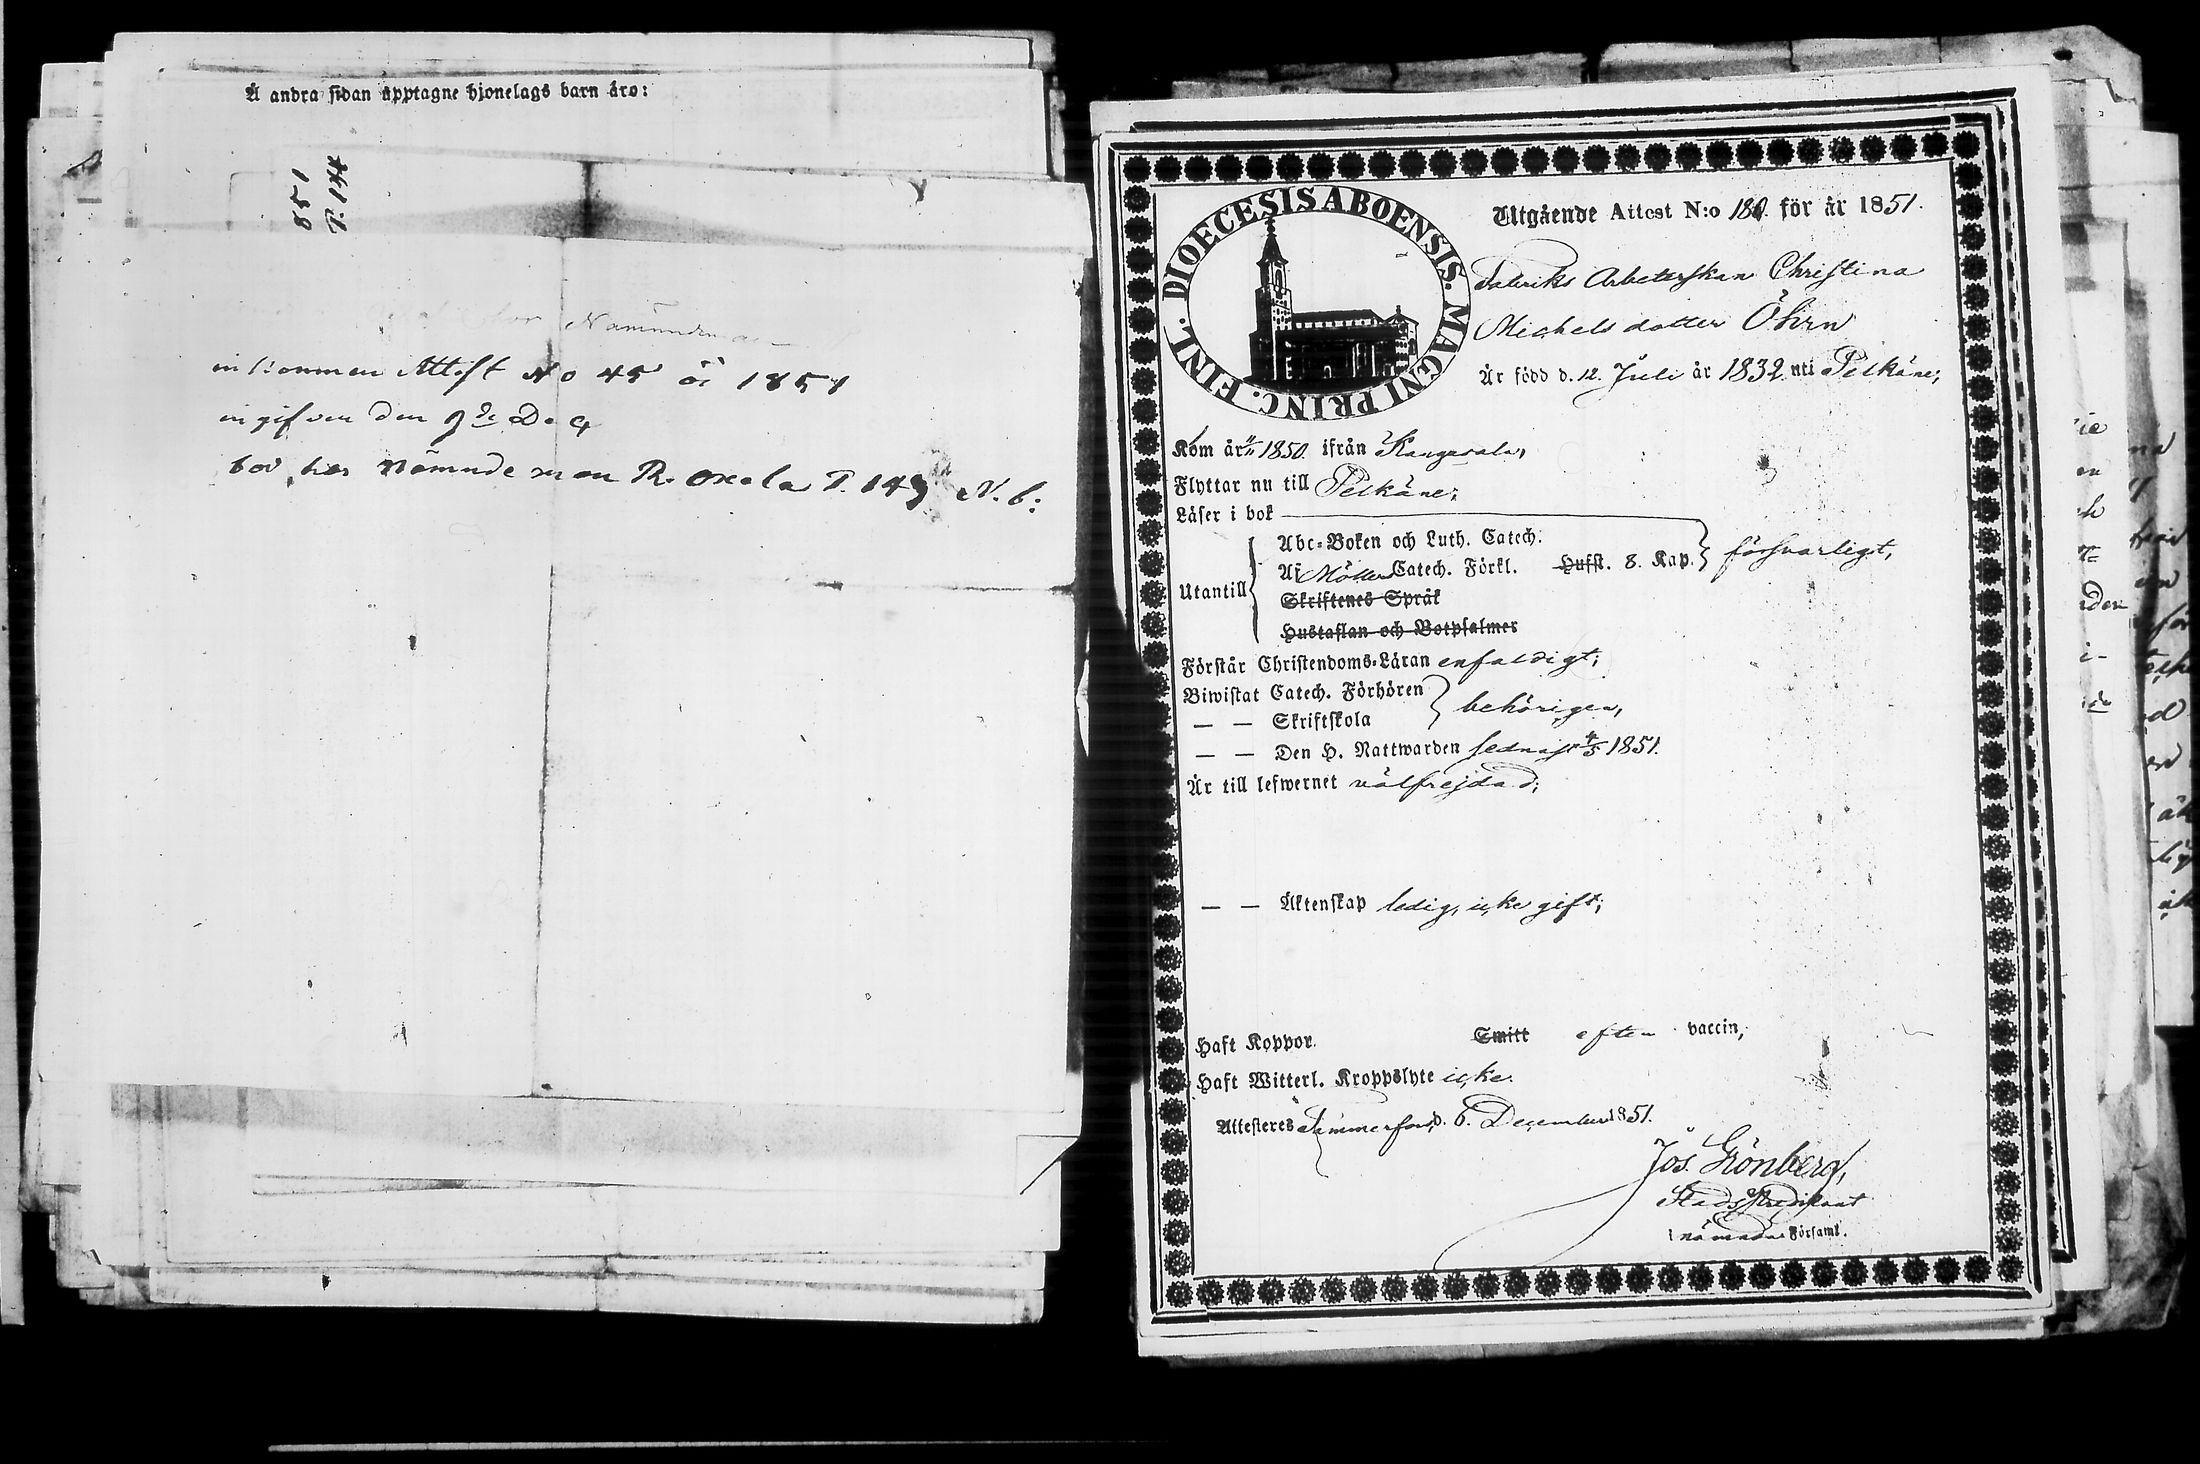 Å andra sidan upptagne hjonelags barn äro:
851
P. 144
Nämndeman
inkommen Attest No 45 år 1851
ingifven den 9de Dec
bor hos Nämndeman R. oxala P. 143 N. 6:
DIOECESIS ABOENSIS. MAGNI PRINC. FINL.
Utgående Attest N:o 180. för år 1851.
Fabriks Arbeterskan Christina
Michelsdotter Öhrn
Är född d. 12. Juli år 1832 uti Pelkäne;
Kom år 1850 ifrån Kangasala,
Flyttar nu till Pelkäne;
Läser i bok
Abc-Boken och Luth. Catech.
Af Möllers Catech. Förkl. Hufst. 8. Kap. försvarligt,
Utantill
Skriftenes Språk
Hustaflan och Botpsalmer
Förstår Christendoms-Läran enfaldigt;
Biwistat Catech. Förhören
behörigen,
— — Skriftskola
— — Den H. Nattwarden sednast 4/5 1851.
Är till lefwernet välfrejdad;
— — Äktenskap ledig, icke gift;
Haft Koppor Smitt efter vaccin,
Haft Witterl. Kroppslyte icke.
Attesteres Tammerfors d. 6. December 1851.
Jos. Grönberg,
Stads Predikant
i nämnde Församl.